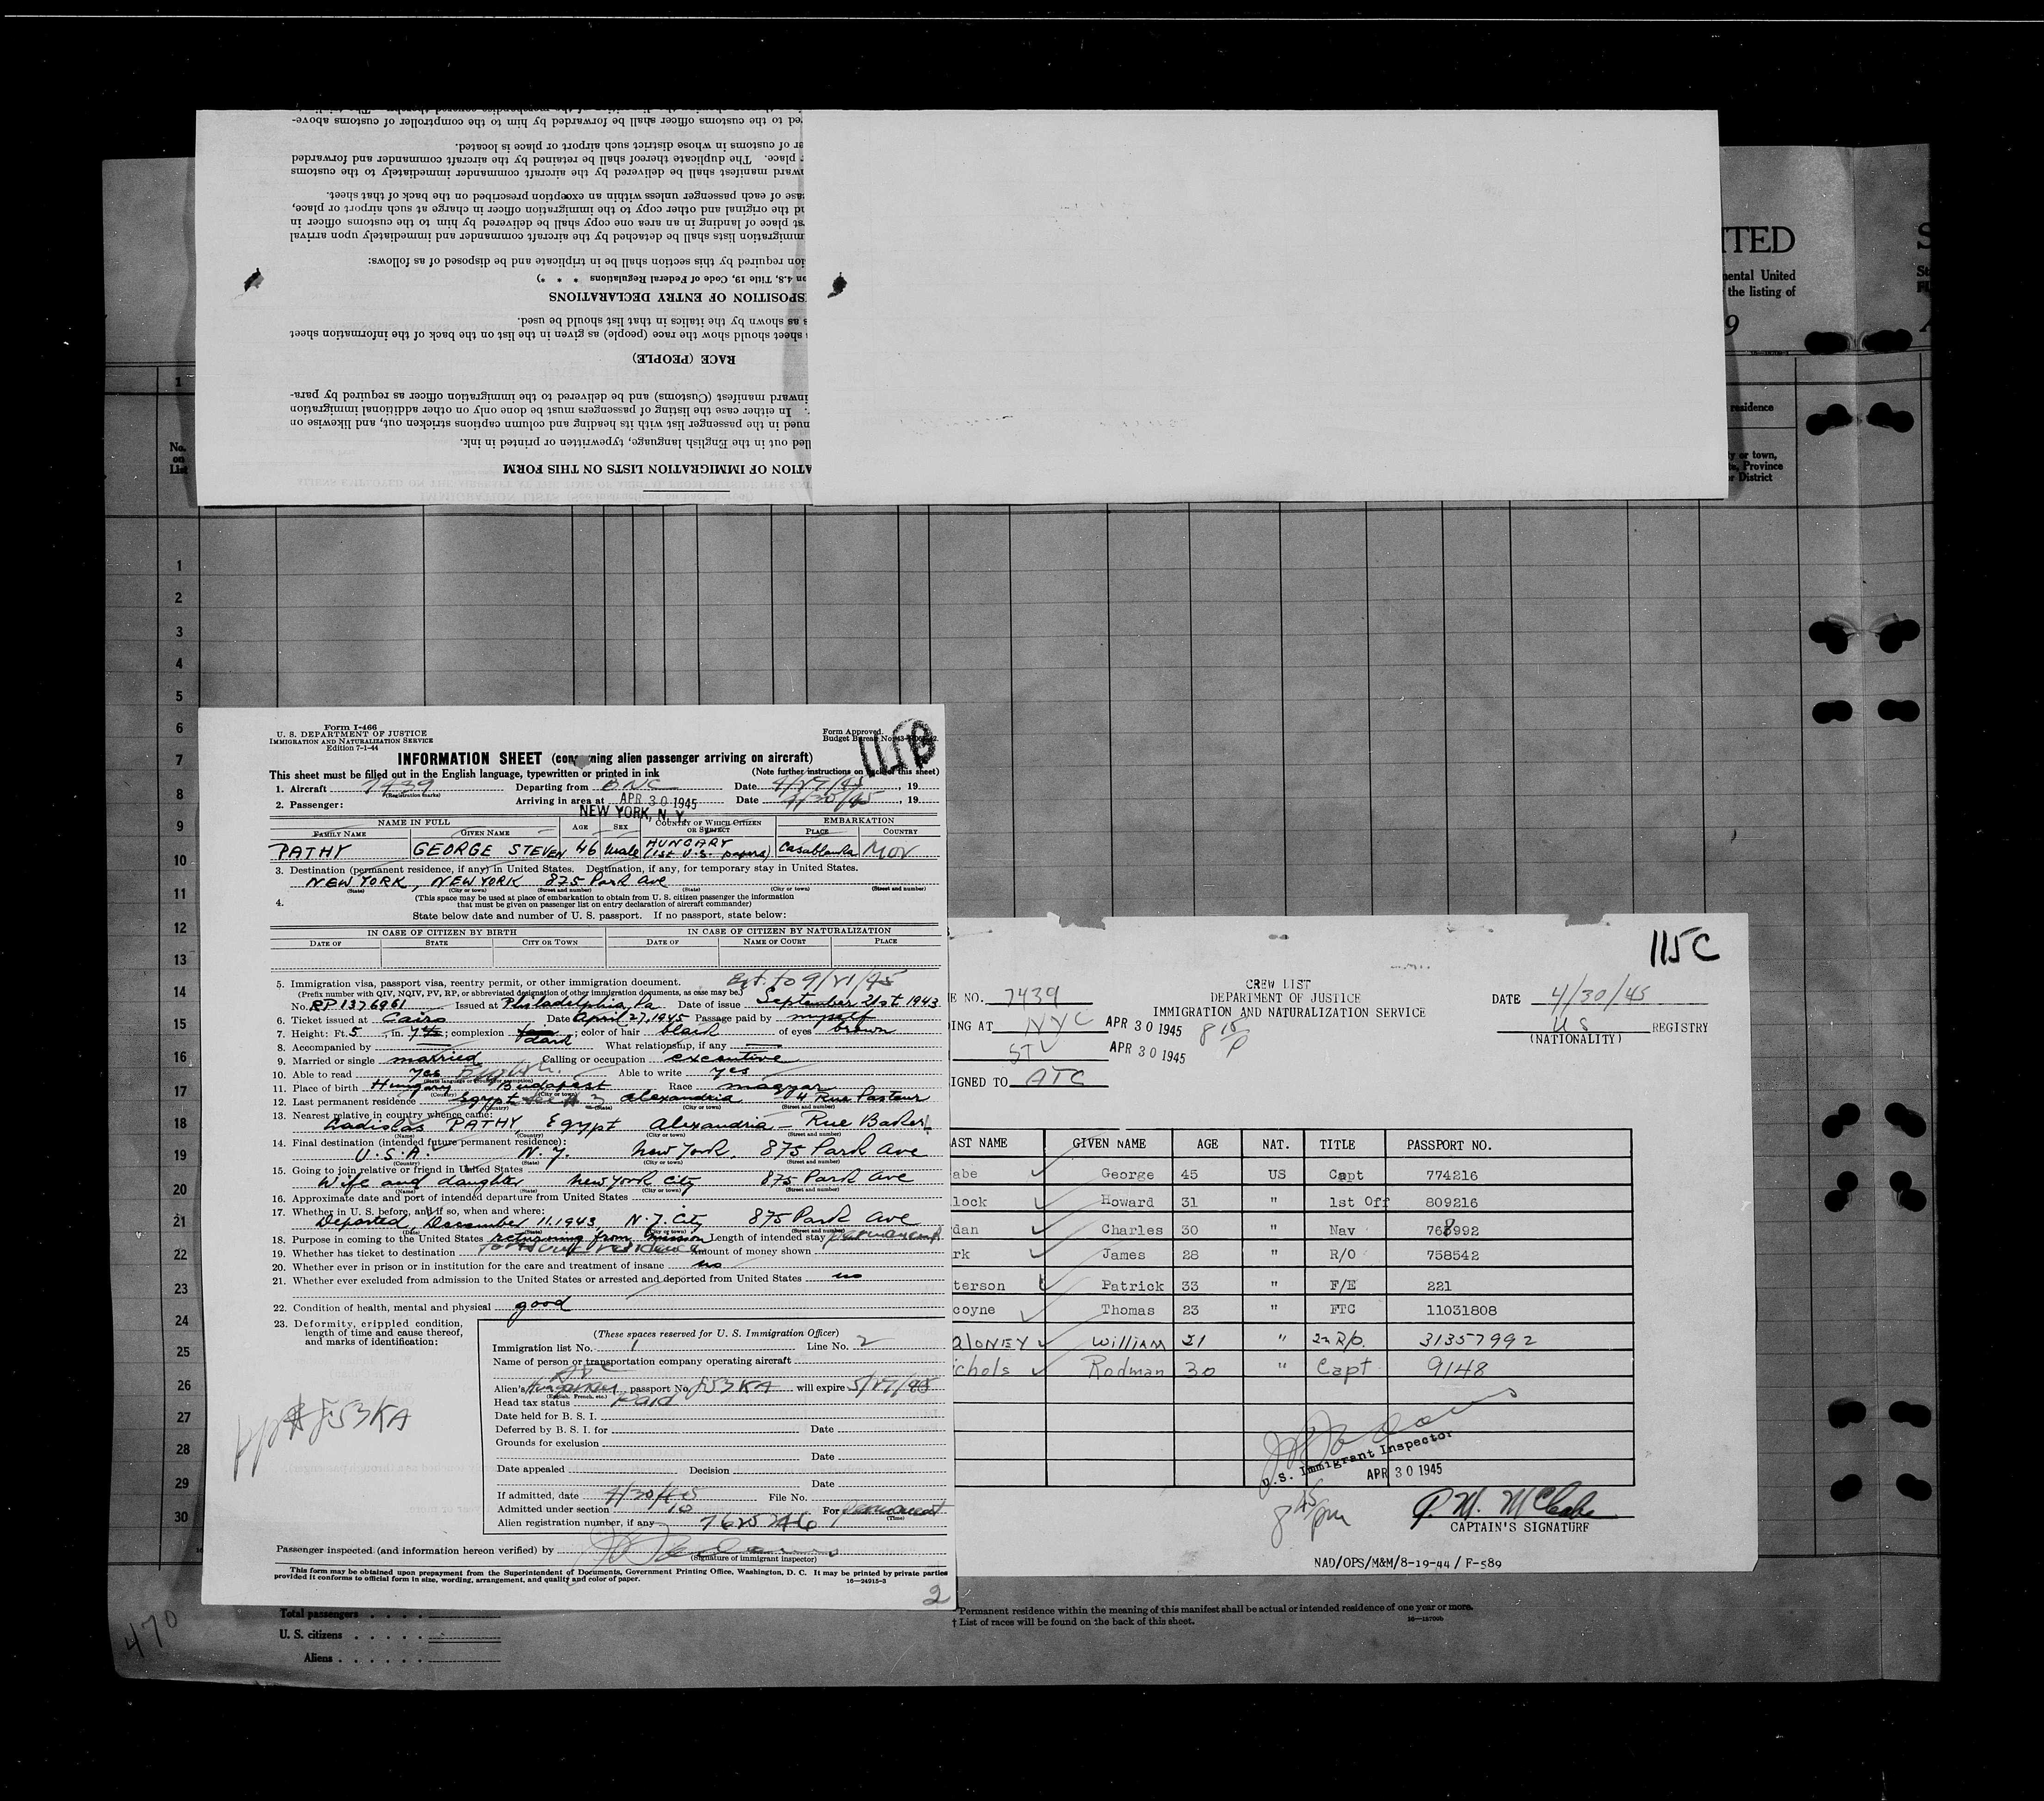 ed to the customs officer shall be forwarded by him to the comptroller of customs above-
er of customs in whose district such airport or place is located.
place. The duplicate thereof shall be retained by the aircraft commander and forwarded
ward manifest shall be delivered by the aircraft commander immediately to the customs
ase of each passenger unless within an exception prescribed on the back of that sheet.
d the original and other copy to the immigration officer in charge at such airport or place,
st place of landing in an area one copy shall be delivered by him to the customs officer in
mmigration lists shall be detached by the aircraft commander and immediately upon arrival
ion required by this section shall be in triplicate and be disposed of as follows:
on 4.8, Title 19, Code of Federal Regulations * * *)
SPOSITION OF ENTRY DECLARATIONS
s as shown by the italics in that list should be used.
sheet should show the race (people) as given in the list on the back of the information sheet
RACE (PEOPLE)
inward manifest (Customs) and be delivered to the immigration officer as required by para-
. In either case the listing of passengers must be done only on other additional immigration
nued in the passenger list with its heading and column captions stricken out, and likewise on
lled out in the English language, typewritten or printed in ink.
ATION OF IMMIGRATION LISTS ON THIS FORM
ITED
mental United
the listing of
9
residence
y or town,
Province
District
No.
on
List
1
1
2
3
4
5
6
7
8
9
10
11
12
13
14
15
16
17
18
19
20
21
22
23
24
25
26
27
28
29
30
Form I-466
U. S. DEPARTMENT OF JUSTICE
IMMIGRATION AND NATURALIZATION SERVICE
Edition 7-1-44
Form Approved.
Budget Bureau No.
115B
INFORMATION SHEET (concerning alien passenger arriving on aircraft)
This sheet must be filled out in the English language, typewritten or printed in ink
(Note further instructions on back of this sheet)
1. Aircraft 7439 (Registration marks) Departing from Date 4/29/45, 19
2. Passenger: Arriving in area at APR 30 1945 Date 4/30/45, 19
NEW YORK, N.Y.
NAME IN FULL AGE SEX COUNTRY OF WHICH CITIZEN OR SUBJECT EMBARKATION
FAMILY NAME GIVEN NAME PLACE COUNTRY
PATHY GEORGE STEVEN 46 Male HUNGARY (1st U.S. papers) Casablanka Mor
3. Destination (permanent residence, if any) in United States. Destination, if any, for temporary stay in United States.
NEW YORK, NEW YORK 875 Park Ave
(State) (City or town) (Street and number) (State) (City or town) (Street and number)
4. (This space may be used at place of embarkation to obtain from U. S. citizen passenger the information
that must be given on passenger list on entry declaration of aircraft commander)
State below date and number of U. S. passport. If no passport, state below:
IN CASE OF CITIZEN BY BIRTH IN CASE OF CITIZEN BY NATURALIZATION
DATE OF STATE CITY OR TOWN DATE OF NAME OF COURT PLACE
5. Immigration visa, passport visa, reentry permit, or other immigration document. Ext. to 9/21/45
(Prefix number with QIV, NQIV, PV, RP, or abbreviated designation of other immigration documents, as case may be.)
No. RP 1376961 Issued at Philadelphia, Pa Date of issue September 21st 1943
6. Ticket issued at Cairo Date April 27, 1945 Passage paid by myself
7. Height: Ft. 5, in. 7½; complexion dark; color of hair black of eyes brown
8. Accompanied by — What relationship, if any —
9. Married or single married Calling or occupation executive
10. Able to read yes English. Able to write yes
11. Place of birth Hungary Budapest Race magyar
(Country) (City or town)
12. Last permanent residence Egypt Alexandria 4 Rue Pasteur
(Country) (State) (City or town) (Street and number)
13. Nearest relative in country whence came:
Ladislas PATHY, Egypt Alexandria - Rue Bader
(Name) (Country) (City or town) (Street and number)
14. Final destination (intended future permanent residence):
U.S.A. N.Y. New York, 875 Park Ave
(Country) (State) (City or town) (Street and number)
15. Going to join relative or friend in United States
Wife and daughter New York City 875 Park Ave
(Name) (State) (City or town) (Street and number)
16. Approximate date and port of intended departure from United States
17. Whether in U. S. before, and if so, when and where:
Departed, December 11.1943, N.Y. City 875 Park Ave
(Date) (City or town) (Street and number)
18. Purpose in coming to the United States returning from mission Length of intended stay permanent
to resume residence
19. Whether has ticket to destination Amount of money shown
20. Whether ever in prison or in institution for the care and treatment of insane no
21. Whether ever excluded from admission to the United States or arrested and deported from United States no
22. Condition of health, mental and physical good
23. Deformity, crippled condition,
length of time and cause thereof,
and marks of identification:
(These spaces reserved for U. S. Immigration Officer)
Immigration list No. 1 Line No. 2
Name of person or transportation company operating aircraft
ATC
Alien's Hungarian passport No. J53KA will expire 5/27/45
(English, French, etc.)
Head tax status Paid
Date held for B. S. I.
Deferred by B. S. I. for Date
Grounds for exclusion
Date
Date appealed Decision
Date
If admitted, date 4/30/45 File No.
Admitted under section 10 For permanent
(Time)
Alien registration number, if any 7625246
pp# J53KA
Passenger inspected (and information hereon verified) by
(Signature of immigrant inspector)
This form may be obtained upon prepayment from the Superintendent of Documents, Government Printing Office, Washington, D. C. It may be printed by private parties
provided it conforms to official form in size, wording, arrangement, and quality and color of paper. 16—24915-3
2
115C
CREW LIST
DEPARTMENT OF JUSTICE
IMMIGRATION AND NATURALIZATION SERVICE
E NO. 7439
DATE 4/30/45
ING AT NYC APR 30 1945 8 15/P
US REGISTRY
(NATIONALITY)
STV APR 30 1945
IGNED TO ATC
AST NAME GIVEN NAME AGE NAT. TITLE PASSPORT NO.
abe George 45 US Capt 774216
lock Howard 31 " 1st Off 809216
dan Charles 30 " Nav 768992
rk James 28 " R/O 758542
terson Patrick 33 " F/E 221
coyne Thomas 23 " FTC 11031808
aloney William 21 " 2n R/O. 31357992
ichols Rodman 30 " Capt 9148
U.S. Immigrant Inspector
APR 30 1945
8 45/pm
CAPTAIN'S SIGNATURE
NAD/OPS/M&M/8-19-44 / F-589
470
Total passengers
U. S. citizens
Aliens
*Permanent residence within the meaning of this manifest shall be actual or intended residence of one year or more.
† List of races will be found on the back of this sheet.